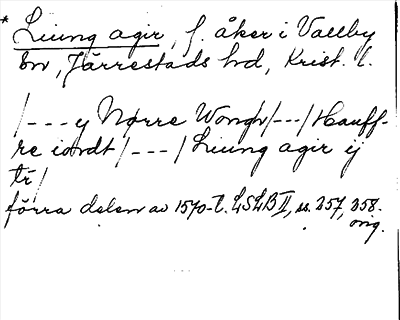 * Liung agir, f. åker i Vallby
sn, Järrestads hd, Krist. l.
/--- y Nørre Wongh/---/Hauff-
re iordt/---/Liung agir ij
tr/
förra delen av 1570-t. LSLB II, ss. 257, 258.
orig.